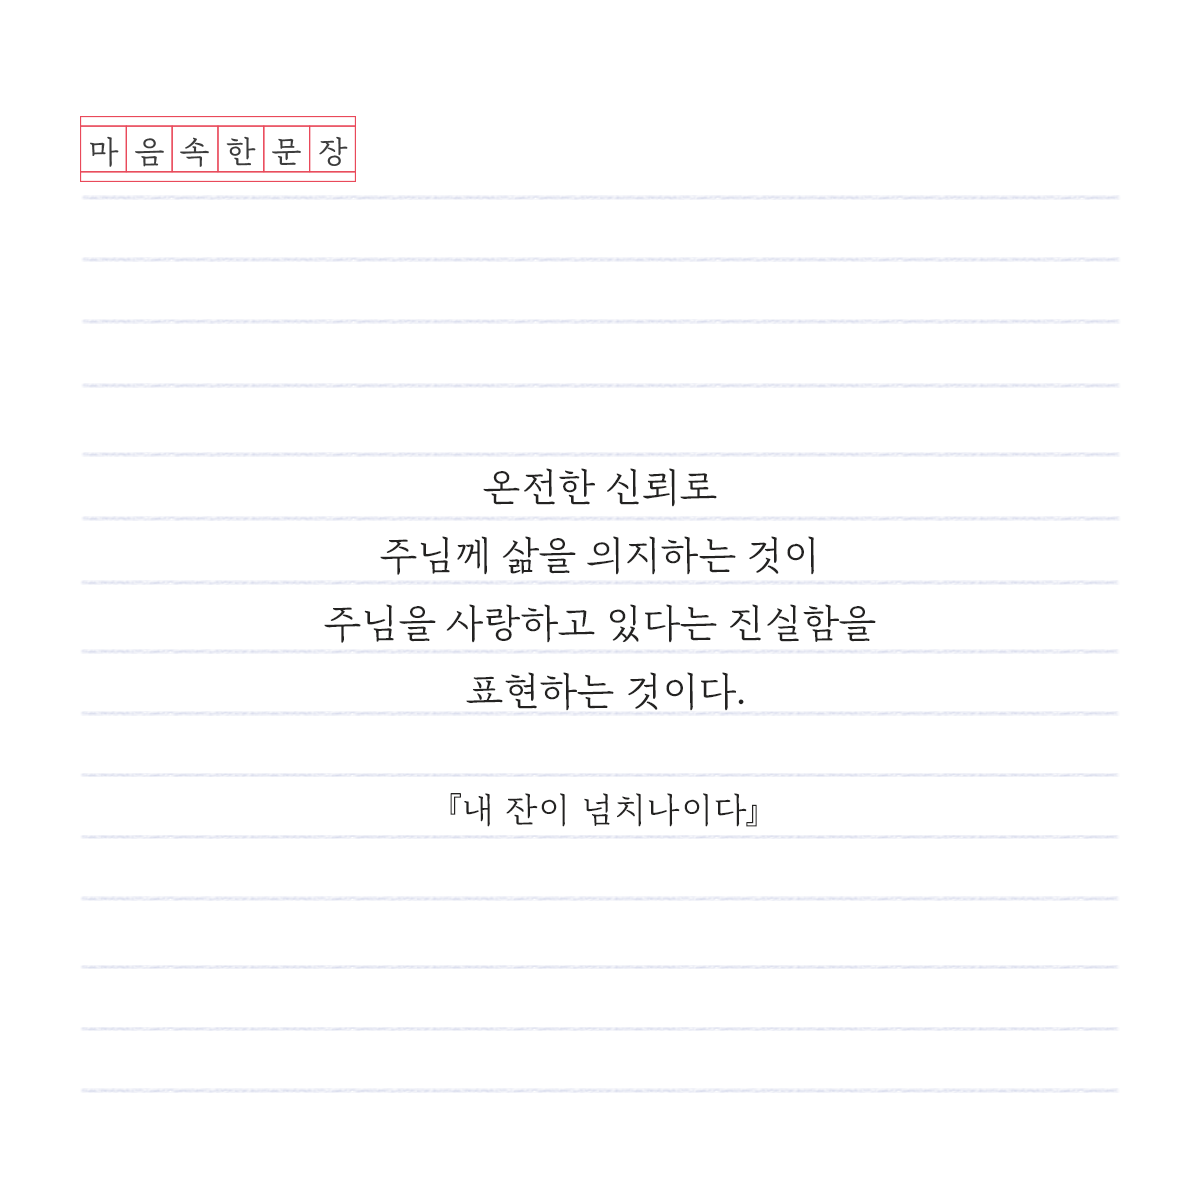 마음속한문장
온전한 신뢰로
주님께 삶을 의지하는 것이
주님을 사랑하고 있다는 진실함을
표현하는 것이다.
『내 잔이 넘치나이다』